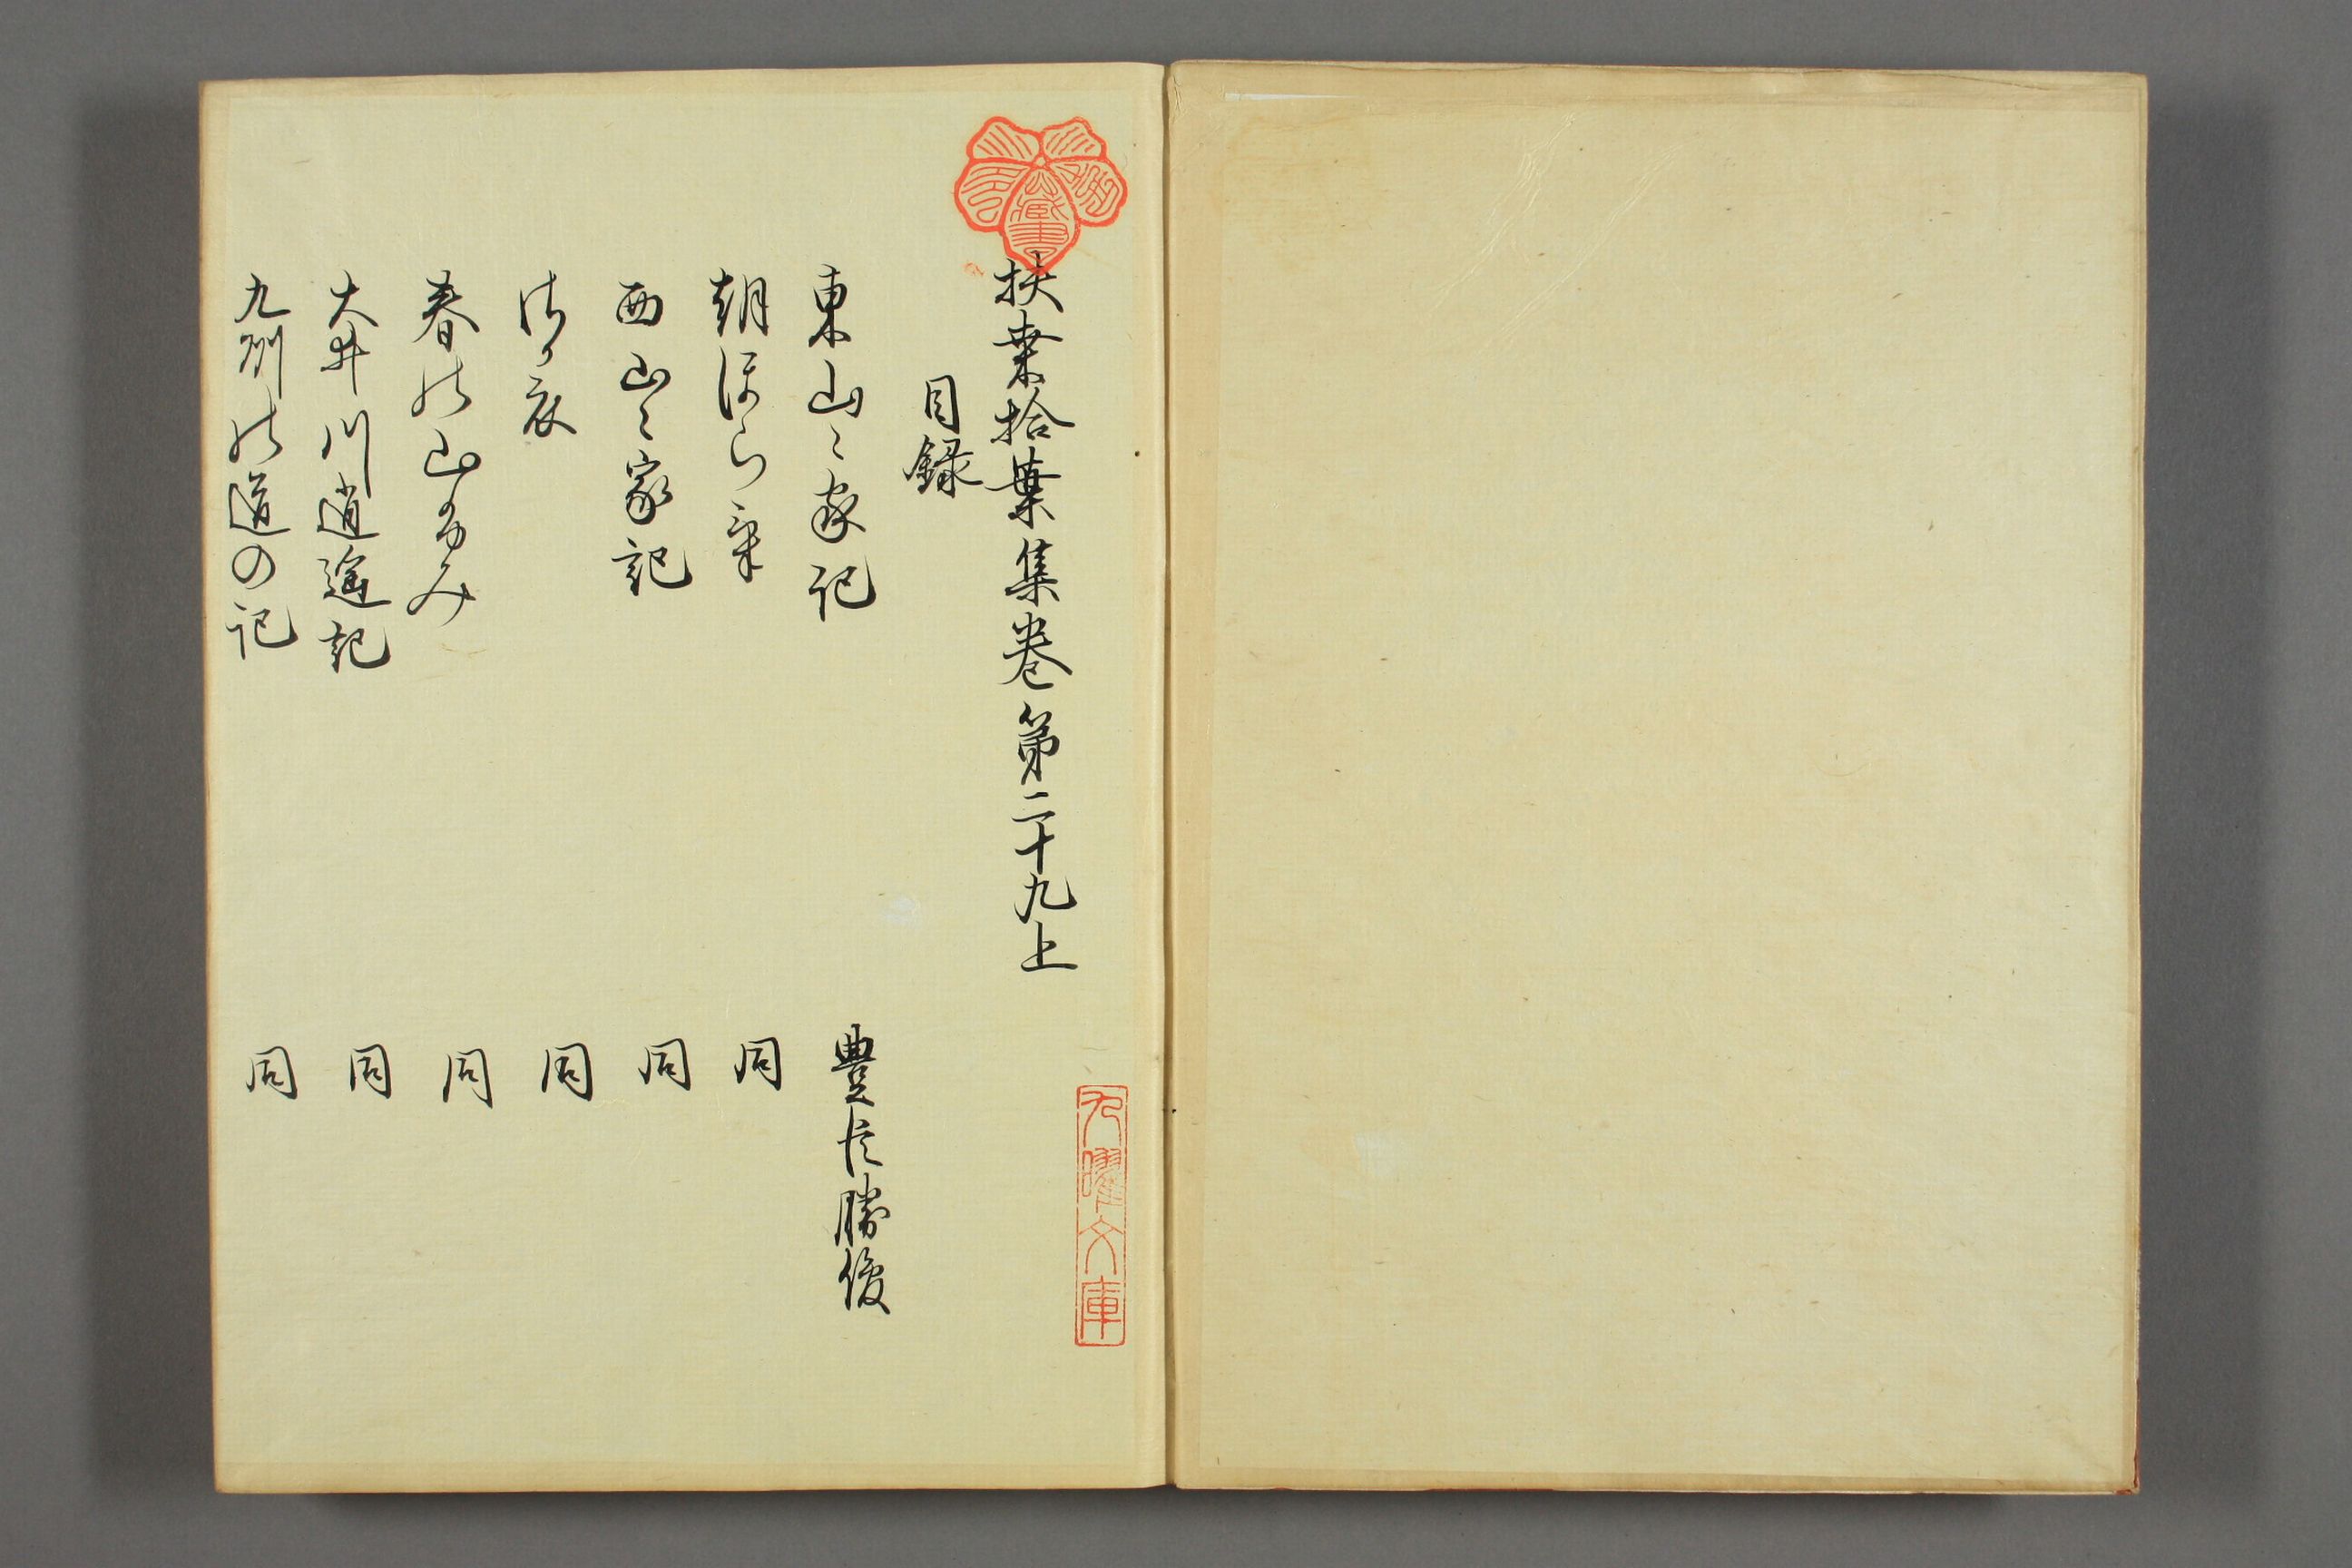 扶桑拾葉集巻第二十九上
目録
東山ゝ家記 豊臣勝俊
朝ほら氣 同
西山ゝ家記 同
衣 同
春の山ふみ 同
大井川逍遥記 同
九州の道の記 同
九曜文庫
蔵書